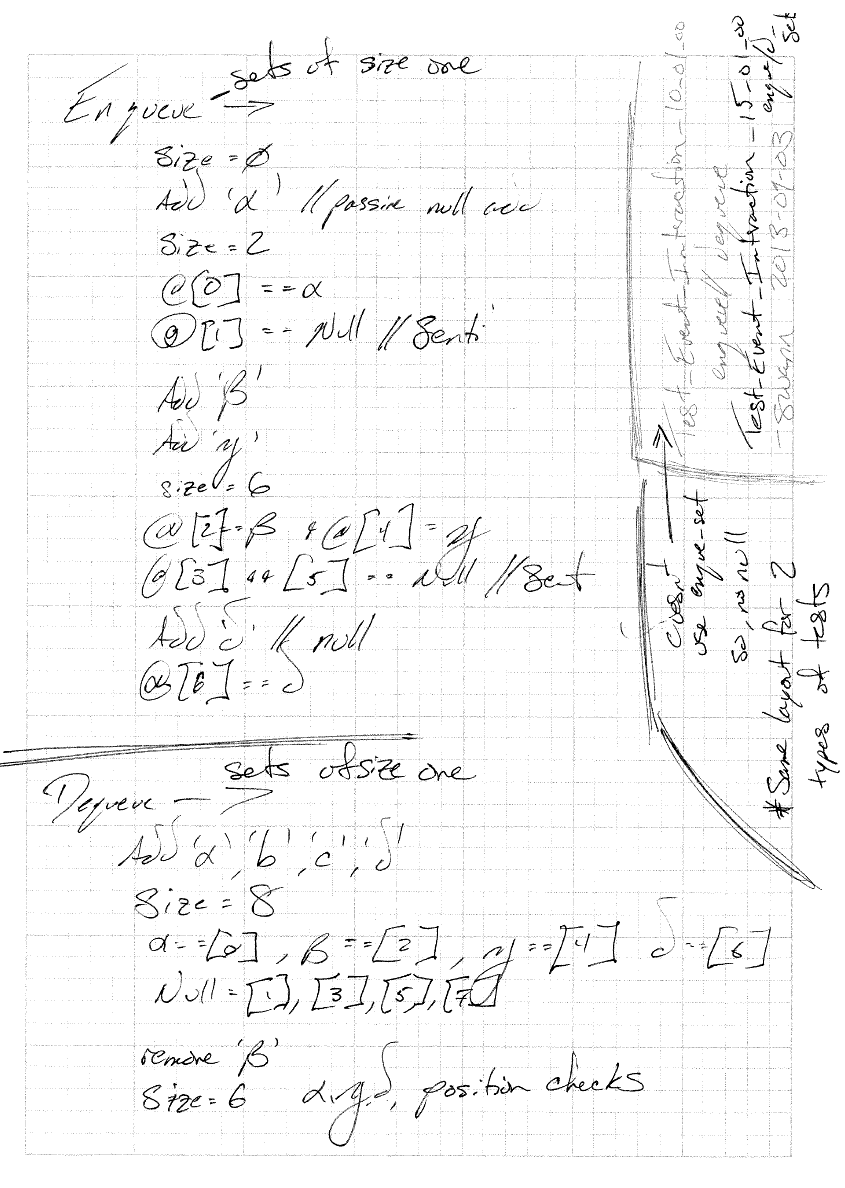 sets of size one
Enqueue →
Size = ∅
Add 'α' // passive null add
Size = 2
@[0] == α
@[1] == Null // Senti
Add 'β'
Add 'γ'
size = 6
@[2] == β & @[4] = γ
@[3] && [5] == Null // Sent
Add 'δ' // null
@[6] == δ
sets of size one
Dequeue — →
Add 'α', 'b', 'c', 'δ'
Size = 8
α == [0], β == [2], γ == [4] δ == [6]
Null = [1], [3], [5], [7]
remove 'β'
Size = 6 α, γ, δ, position checks
Test-Event-Interaction_10-01-00
enqueue/dequeue
Test-Event-Interaction_15-01-00
enqueue/d-
set
-Swann 2013-09-03
doesn't
use enque-set
so, no null
* Same layout for 2
types of tests